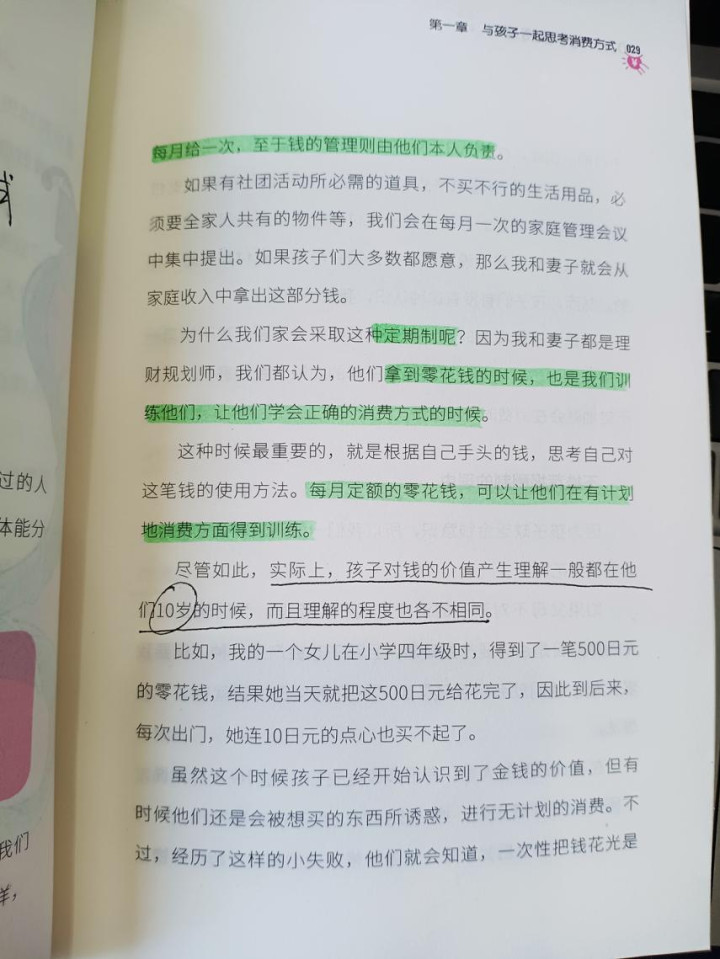 第一章 与孩子一起思考消费方式 029
每月给一次，至于钱的管理则由他们本人负责。
如果有社团活动所必需的道具，不买不行的生活用品，必
须要全家人共有的物件等，我们会在每月一次的家庭管理会议
中集中提出。如果孩子们大多数都愿意，那么我和妻子就会从
家庭收入中拿出这部分钱。
为什么我们家会采取这种定期制呢？因为我和妻子都是理
财规划师，我们都认为，他们拿到零花钱的时候，也是我们训
练他们，让他们学会正确的消费方式的时候。
这种时候最重要的，就是根据自己手头的钱，思考自己对
这笔钱的使用方法。每月定额的零花钱，可以让他们在有计划
地消费方面得到训练。
尽管如此，实际上，孩子对钱的价值产生理解一般都在他
们10岁的时候，而且理解的程度也各不相同。
比如，我的一个女儿在小学四年级时，得到了一笔500日元
的零花钱，结果她当天就把这500日元给花完了，因此到后来，
每次出门，她连10日元的点心也买不起了。
虽然这个时候孩子已经开始认识到了金钱的价值，但有
时候他们还是会被想买的东西所诱惑，进行无计划的消费。不
过，经历了这样的小失败，他们就会知道，一次性把钱花光是
过的人
体能分
我们